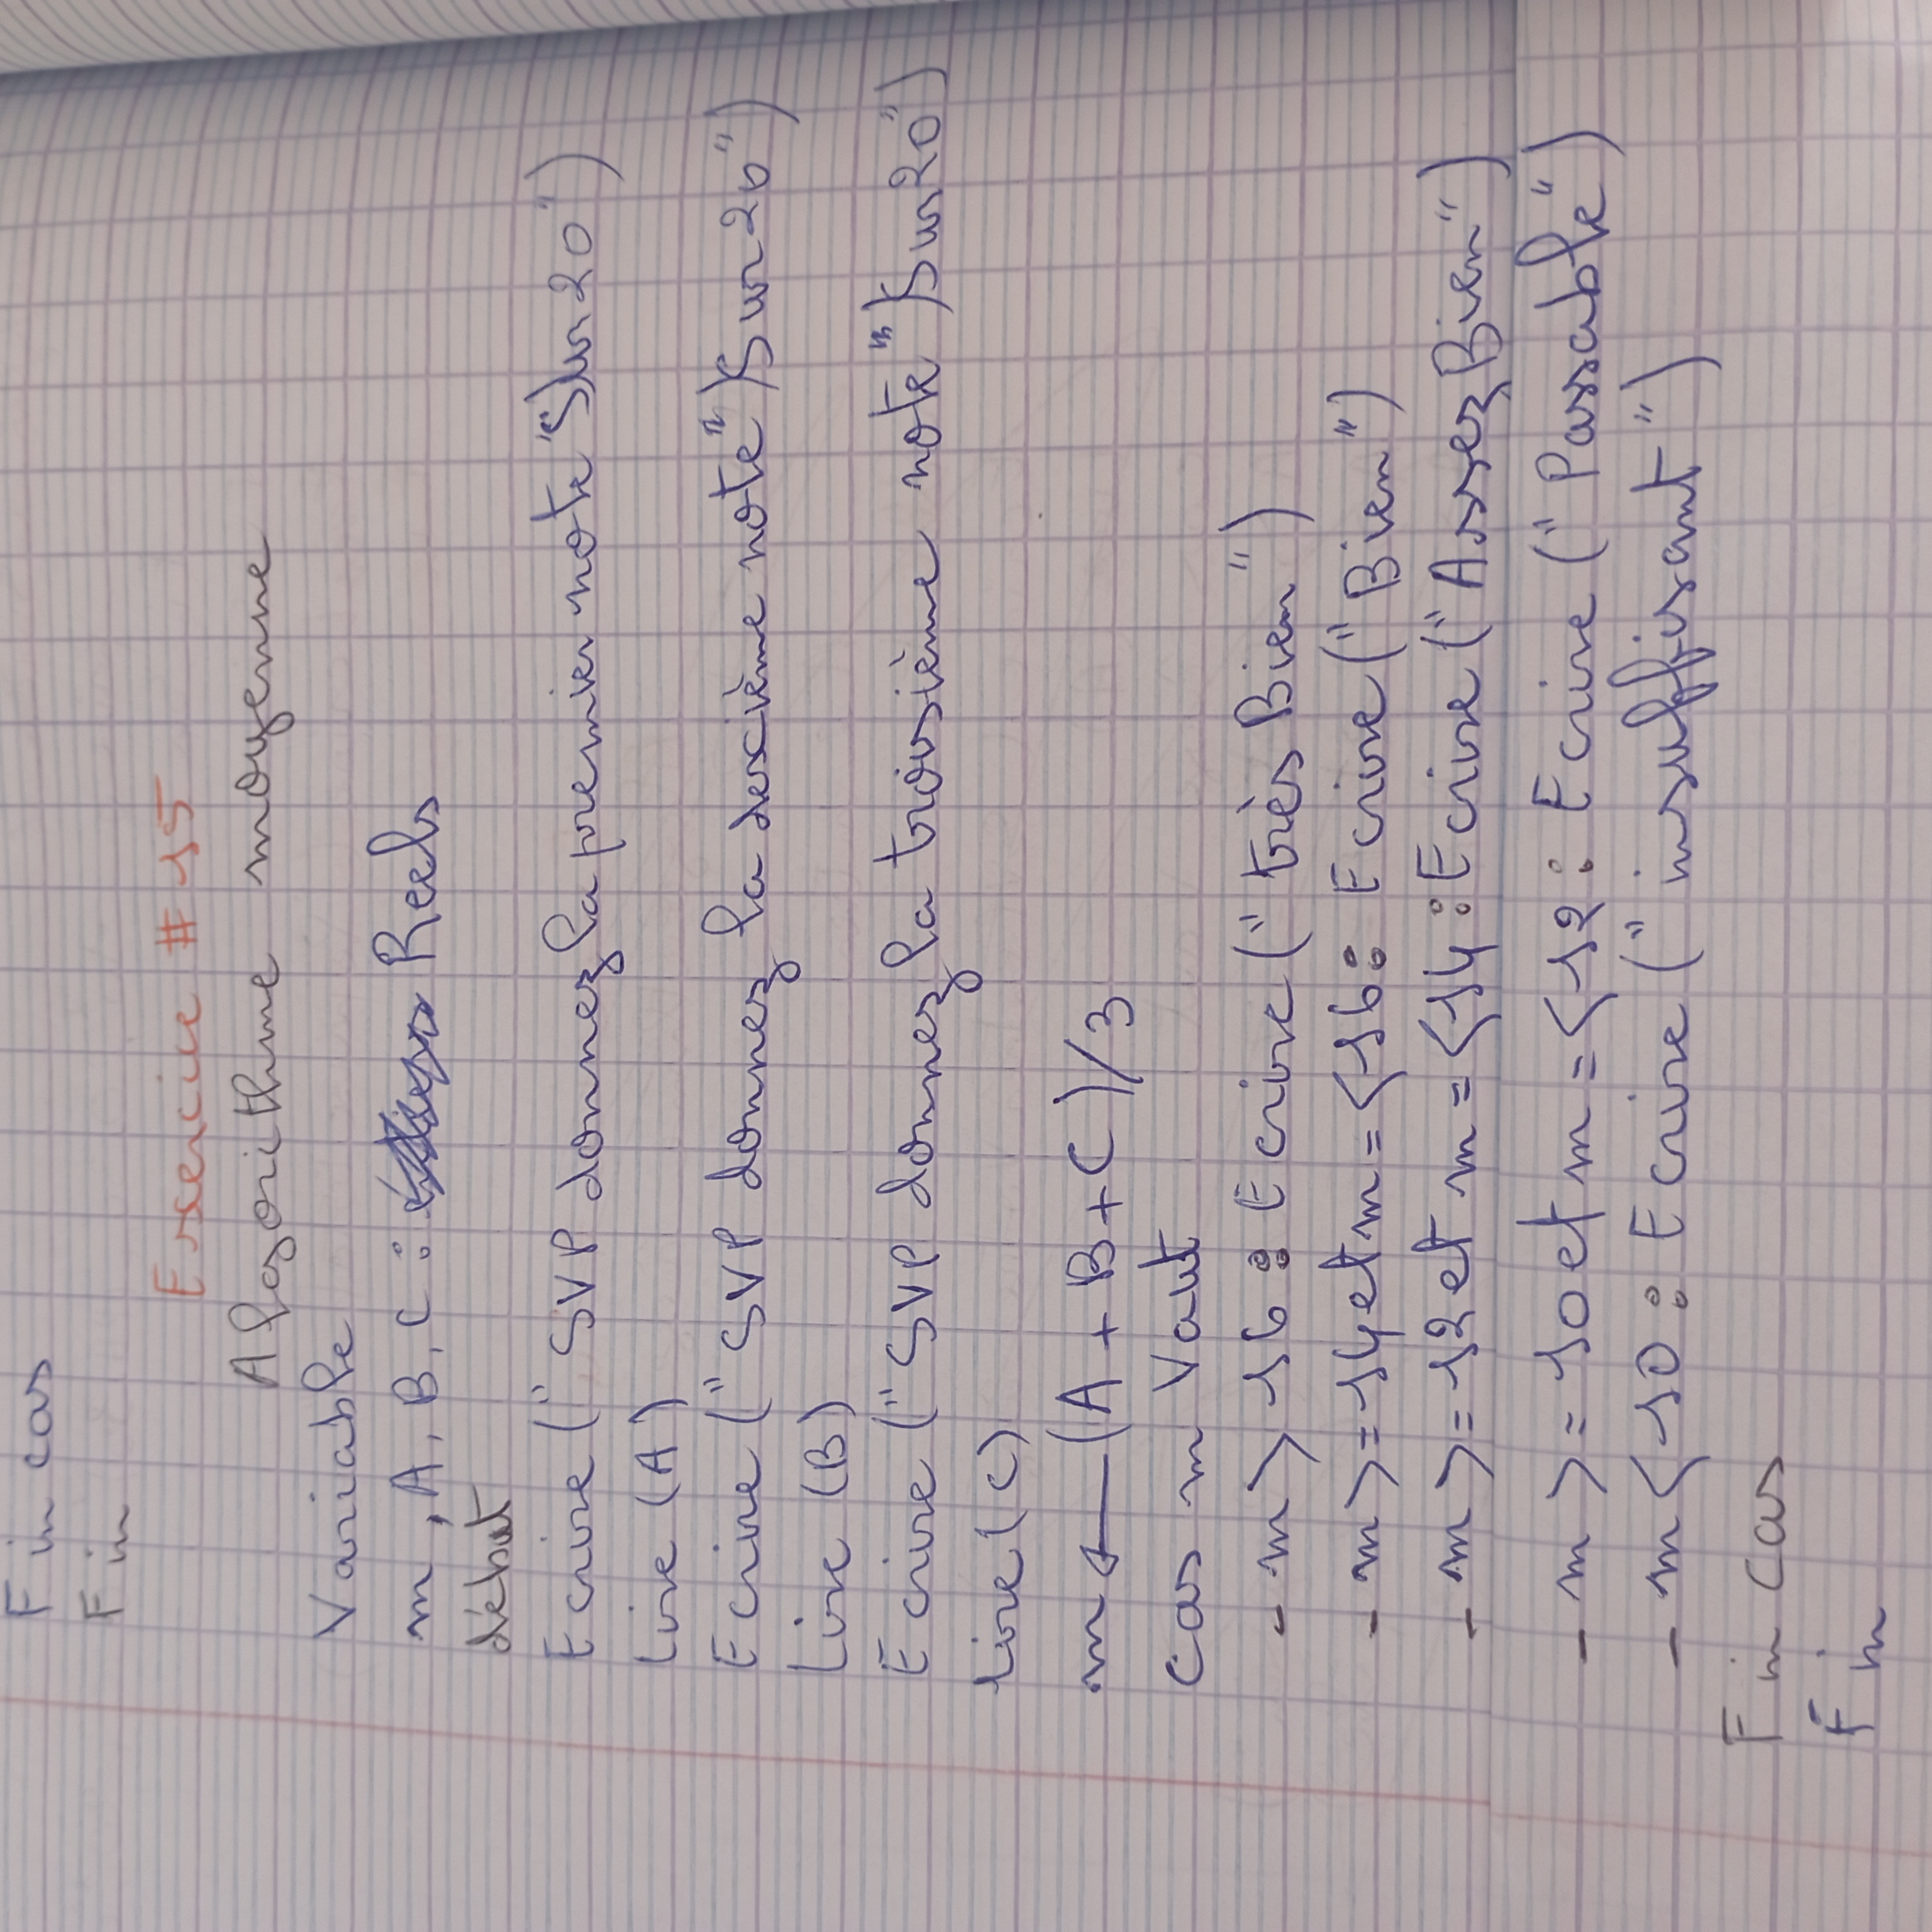 Fin cas
Fin
Exercice #15
Algorithme moyenne
Variable
m, A, B, C : Reels
début
Ecrire (" SVP donnez la premier note Sur 20 ")
Lire (A)
Ecrire (" SVP donnez la dexcième note") Sur 20 ")
Lire (B)
Ecrire (" SVP donnez la troisième note") Sur 20")
lire (C)
m ← (A + B + C)/3
cas m Vaut
- m > 16 : Ecrire (" très Bien ")
- m >= 14 et m =< 16 : Ecrire (" Bien ")
- m >= 12 et m =< 14 : Ecrire (" Assez Bien ")
- m >= 10 et m =< 12 : Ecrire (" Passable ")
- m < 10 : Ecrire (" insuffisant ")
Fin cas
Fin